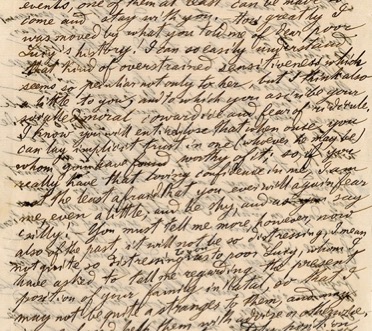 events, one of them at least can be made
come and stay with you. How greatly I
was moved by what you told me of dear poor
Lucy's history. I can so easily understand
that kind of overstrained sensitiveness which
seems so peculiar not only to her, but I think also
a little to you, and to which you ascribe your
moral cowardice and fear of ridicule.
I know you will enti that when once you
can lay implicit trust in one (whoever he may be)
whom you have found worthy of it, so if you
really have that loving confidence in me, I am
not the least afraid that you ever will again fear
me, even a little, and be shy, and say
silly. You must tell me more, however, now
also of the past, it will not be so distressing, I mean
not quite so distressing as to poor Lucy whom I
have asked to tell me regarding the present
position of your family in Natal, so that I
may not be quite a stranger to them and may
help them with advice or otherwise,